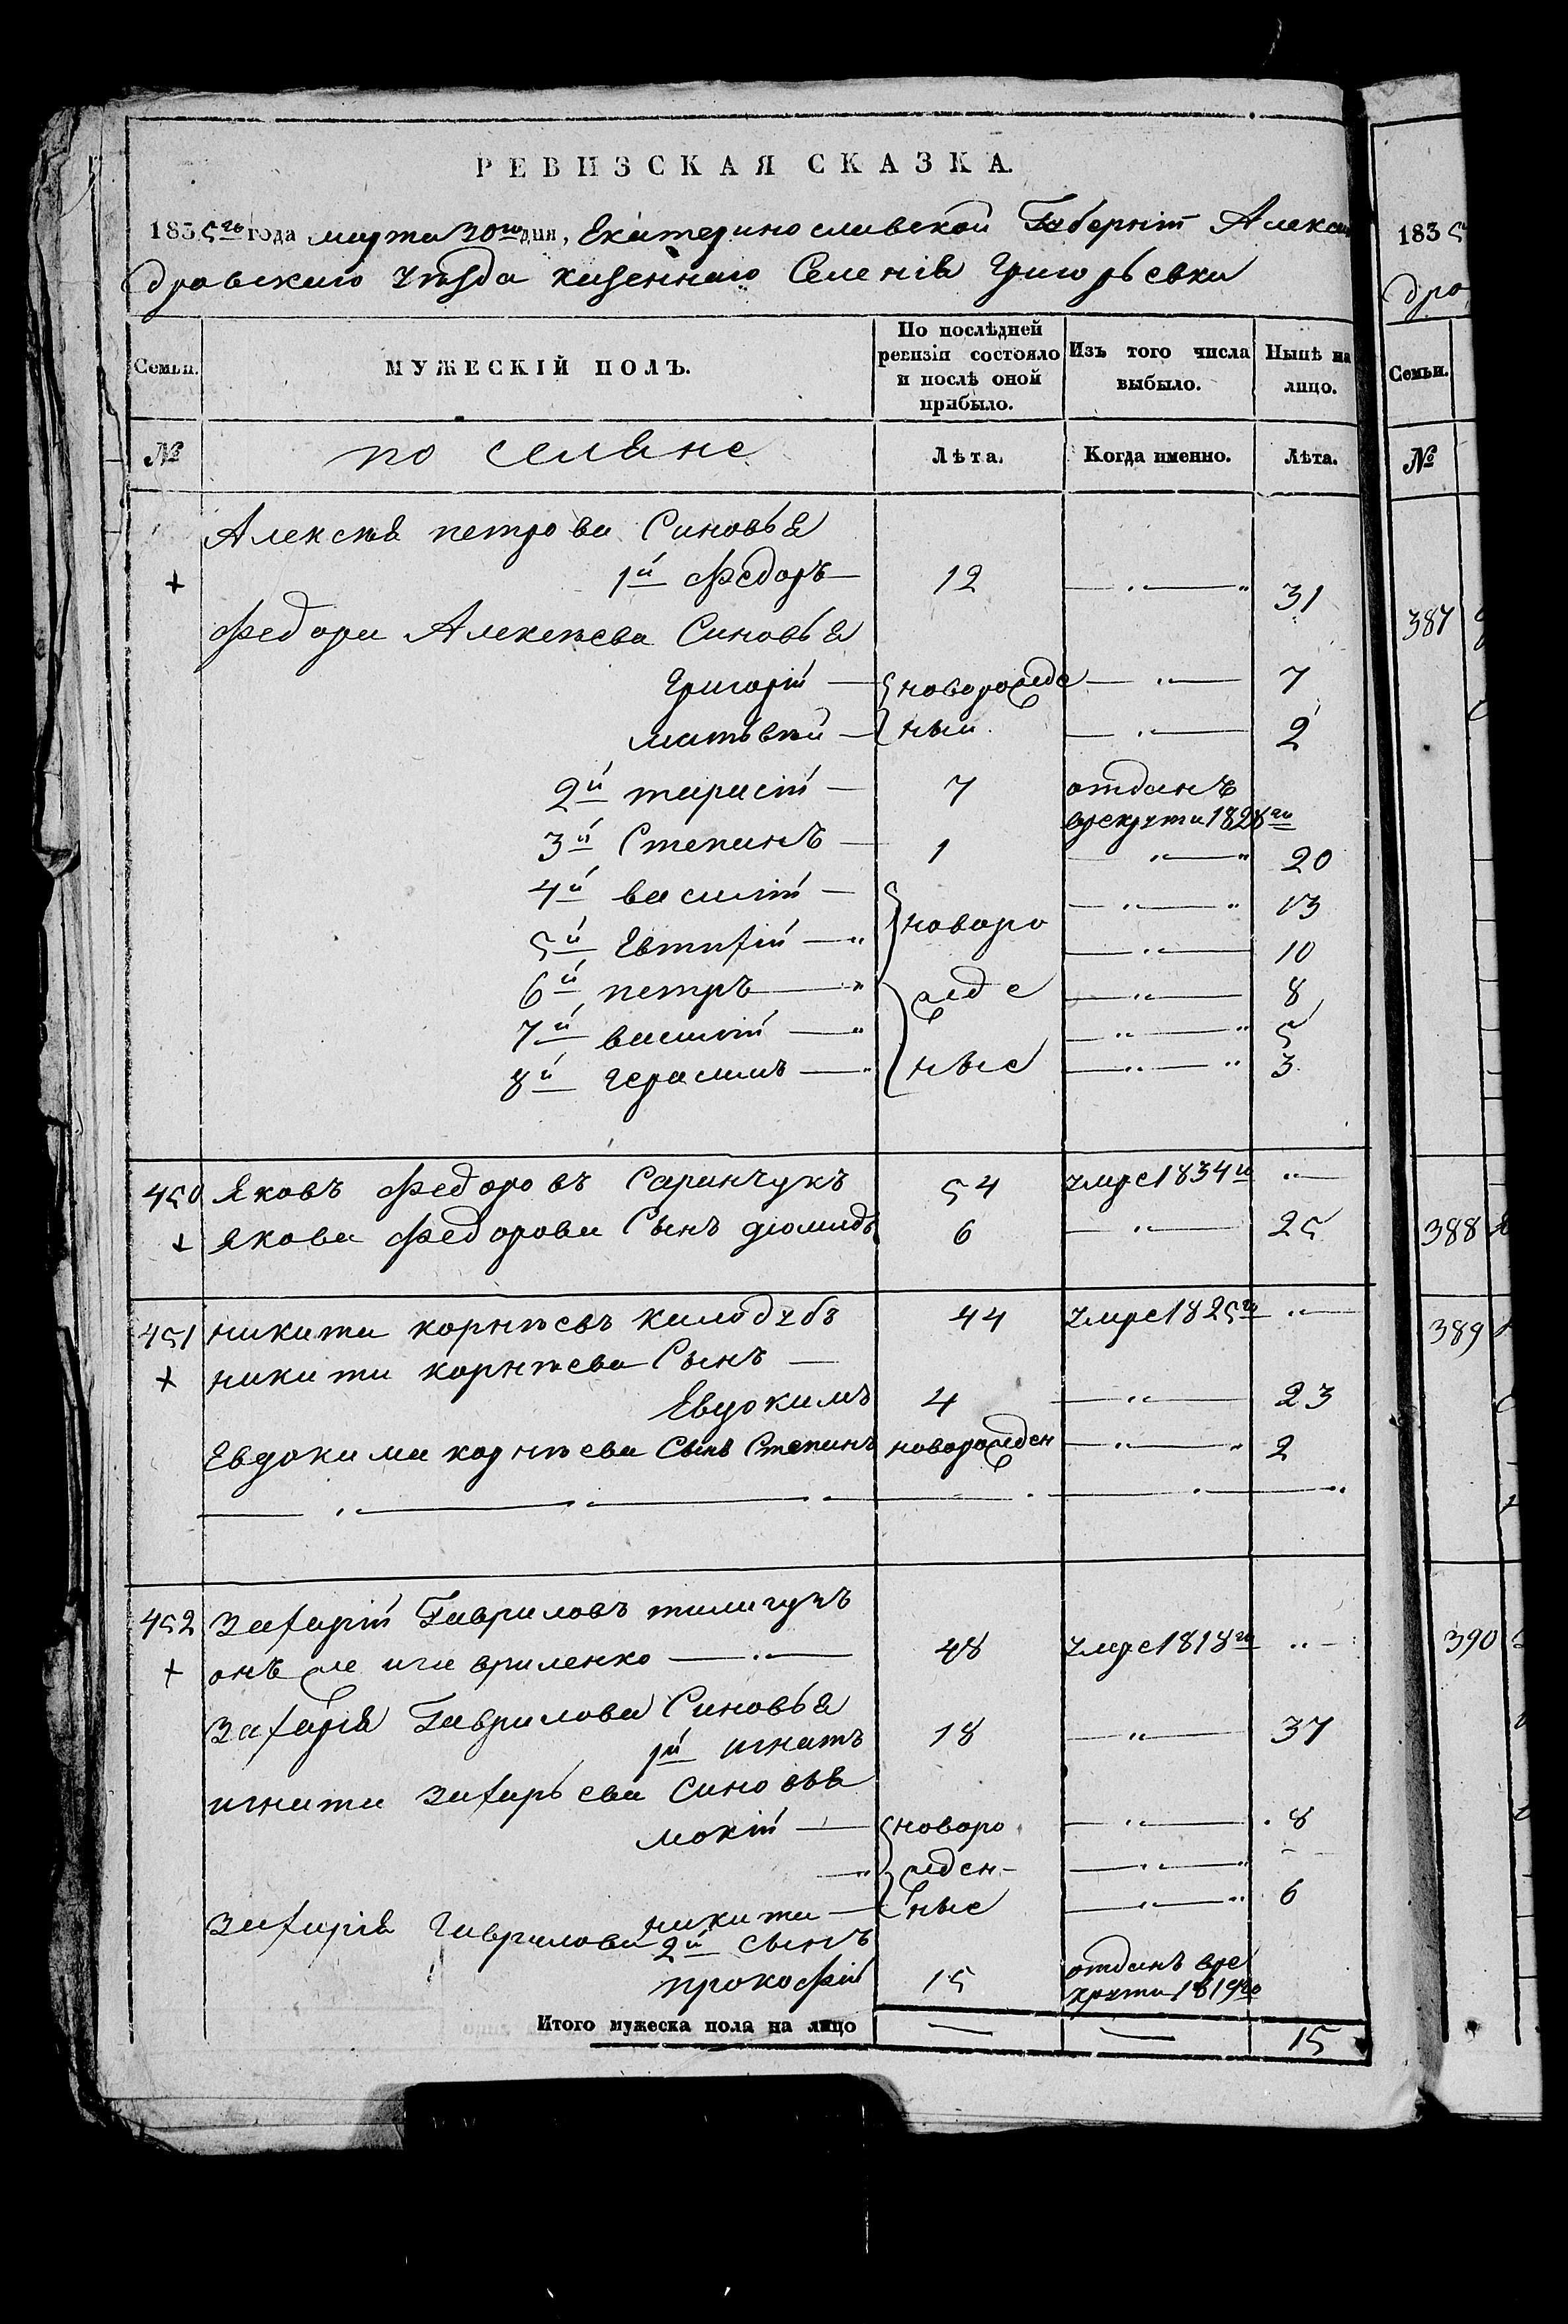 РЕВИЗСКАЯ СКАЗКА.
1835го года марта 30го дня, Екатеринославской Губерніи Алексан
дровскаго уѣзда казеннаго Селенія Григорьевки
Семьи. МУЖЕСКІЙ ПОЛЪ. По послѣдней ревизіи состояло и послѣ оной прибыло. Изъ того числа выбыло. Нынѣ на лицо.
№ поселяне Лѣта. Когда именно. Лѣта.
Алексѣя петрова Синовья
+ 1й Федоръ 12 31
Федора Алексѣева Синовья
Григорій новорожде 7
матьвѣй ный 2
2й тарасій 7 отданъ
врекрути 1828го
3й Степанъ 1 20
4й василій 13
новоро
5й Евтифій 10
6й петръ жде 8
7й василій 5
8й Герасимъ ные 3
450 Яковъ Федоровъ Саранчукъ 54 умре 1834го
+ Якова Федорова Сынъ диомидъ 6 25
451 никита корнѣевъ калодубъ 44 умре 1825го
+ никити корнѣева Сынъ
Евдокимъ 4 23
Евдокима корнѣева Сынъ Степанъ новорожден 2
452 Захарій Гавриловъ тилигузъ
+ онъ же игавриленко 48 умре 1818го
Захарія Гаврилова Синовья
1й игнатъ 18 37
игната Захарьева Синовья
мокій новоро 8
жден
никита ные 6
Захарія Гаврилова 2й сынъ
прокофій 15 отданъ вре
крути 1819го
Итого мужеска пола на лицо 15
1835
дро
Семьи.
№
387
388
389
390